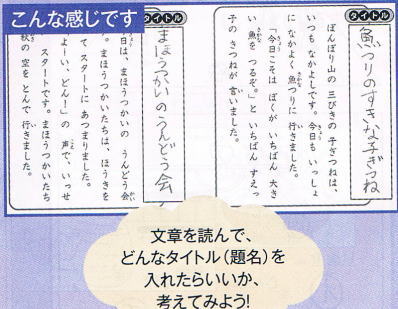 こんな感じです
タイトル
魚つりのすきな子ぎつね
ぽんぽり山の 三びきの 子ぎつねは、
いつも なかよしです。今日も いっしょ
に なかよく 魚つりに 行きました。
「今日こそは ぼくが いちばん 大き
い 魚を つるぞ。」と いちばん すえっ
子の きつねが 言いました。
タイトル
まほうつかいのうんどう会
日は、まほうつかいの うんどう会
。まほうつかいたちは、ほうきを
て スタートに あつまりました。
よーい、どん!」の 声で、いっせ
スタートです。まほうつかいたち
秋の 空を とんで 行きました。
文章を読んで、
どんなタイトル(題名)を
入れたらいいか、
考えてみよう!